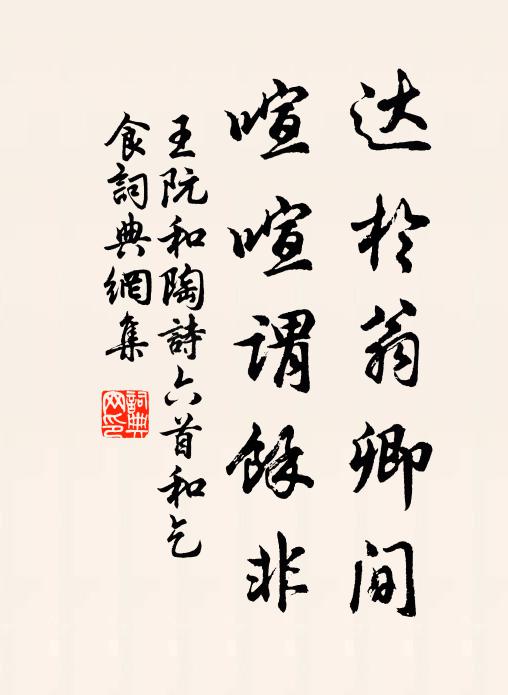 达於翁卿间
喧喧谓馀非
王阮和陶詩六首和乞
食詞典網集
詞典网印